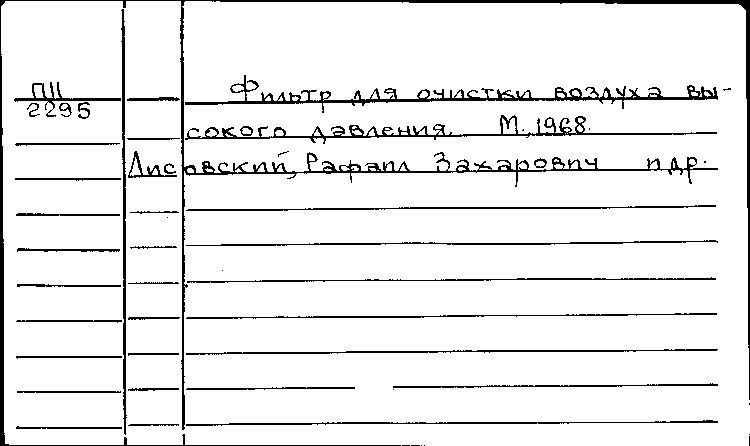 П11
2295
Фильтр для очистки воздуха вы-
сокого давления. М., 1968.
Лисовский, Рафаил Захарович и др.